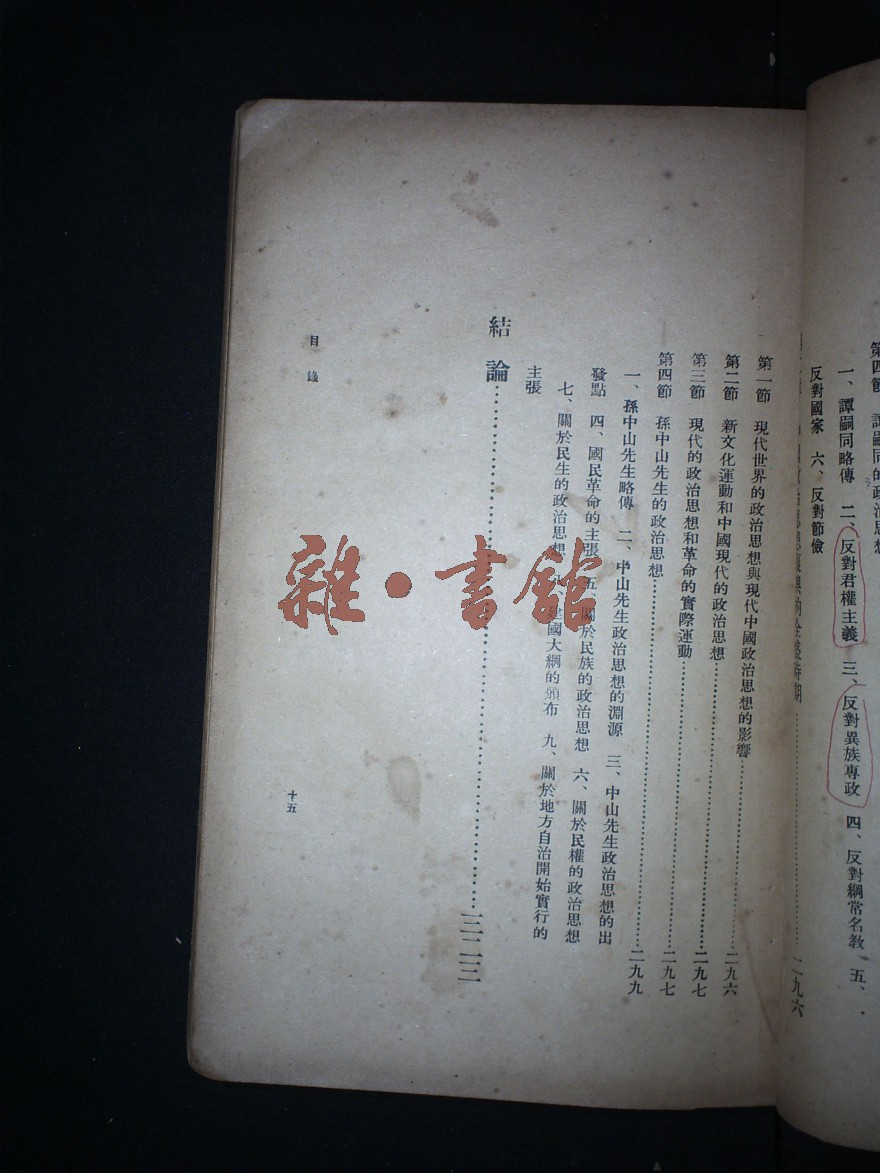 第四節　譚嗣同的政治思想
一、譚嗣同略傳　二、反對君權主義　三、反對異族專政　四、反對綱常名教　五、
反對國家　六、反對節儉
政治思想復興的全盛時期……二九六
第一節　現代世界的政治思想與現代中國政治思想的影響……二九六
第二節　新文化運動和中國現代的政治思想……二九六
第三節　現代的政治思想和革命的實際運動……二九七
第四節　孫中山先生的政治思想……二九七
一、孫中山先生略傳　二、中山先生政治思想的淵源　三、中山先生政治思想的出……二九九
發點　四、國民革命的主張　五、關於民族的政治思想　六、關於民權的政治思想
七、關於民生的政治思想　建國大綱的頒布　九、關於地方自治開始實行的
主張
結論……三二三
目錄
十五
雜·書館